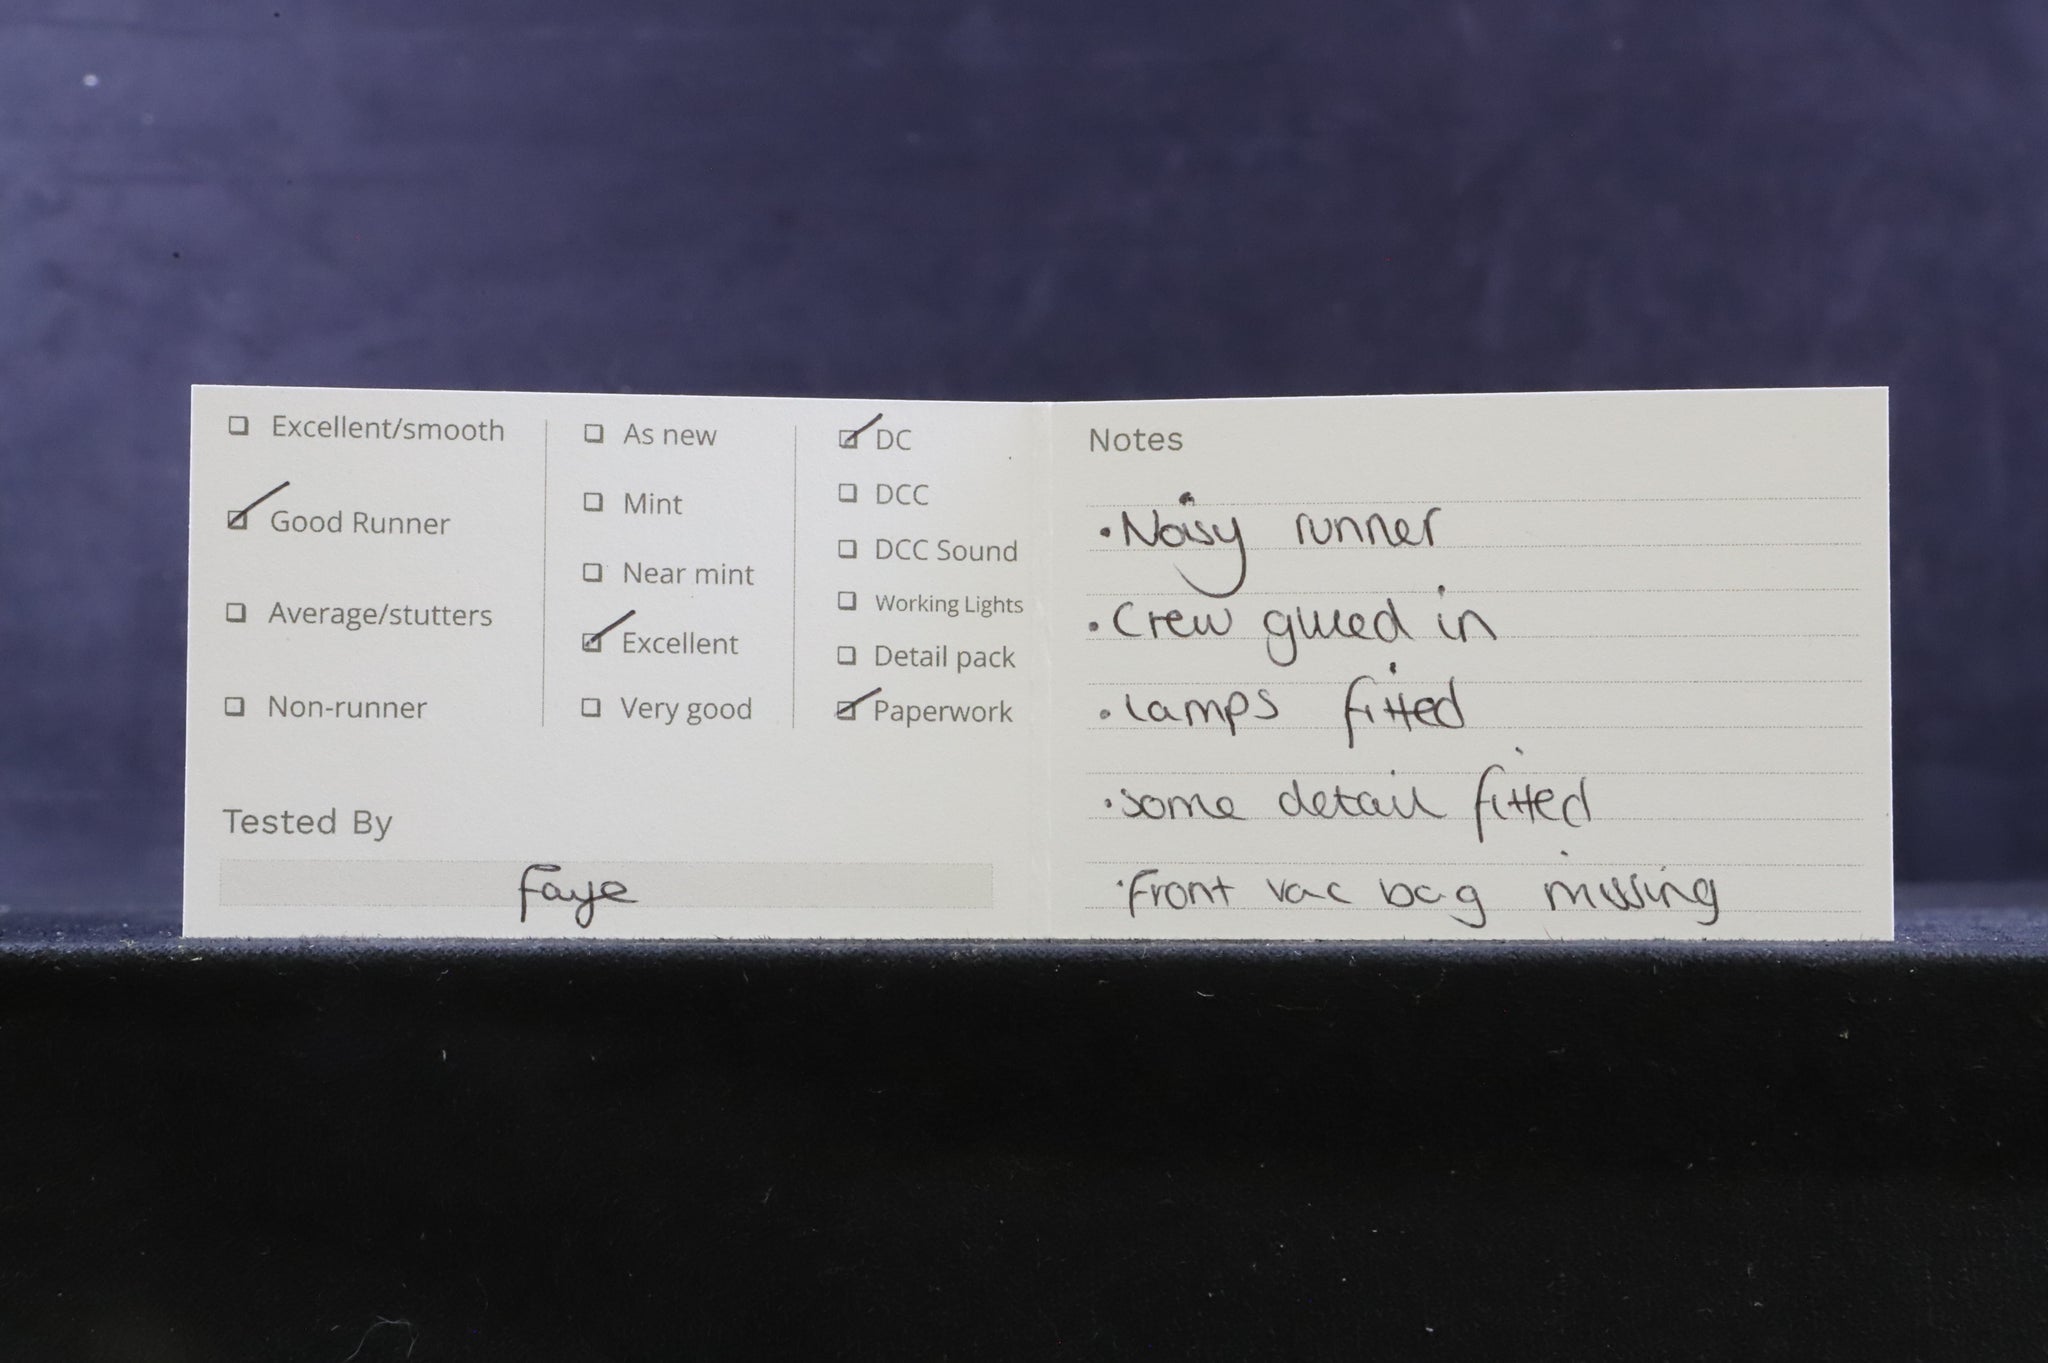 Excellent/smooth
Good Runner
Average/stutters
Non-runner
As new
Mint
Near mint
Excellent
Very good
DC
DCC
DCC Sound
Working Lights
Detail pack
Paperwork
Tested By
Faye
Notes
• Noisy runner
• Crew glued in
• Lamps fitted
• some detail fitted
• Front vac bag missing